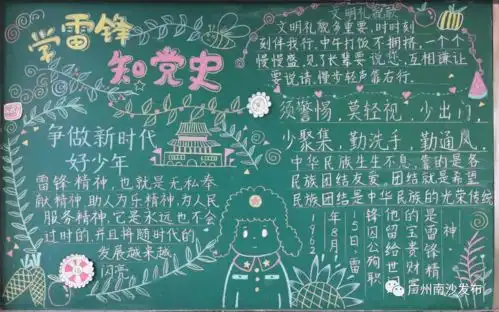 学雷锋
知党史
争做新时代
好少年
雷锋精神,也就是无私奉
献精神,助人为乐精神,为人民
服务精神。它是永远也不会
过时的,并且将随时代的
发展越来越
闪亮。
文明礼貌歌
文明礼貌多重要,时时刻
刻伴我行。中午打饭不拥挤,一个个
慢慢盛,见了长辈要说您,互相谦让
要说请,慢步轻声靠右行。
须警惕,莫轻视,少出门,
少聚集,勤洗手,勤通风。
中华民族生生不息,靠的是各
民族团结友爱。团结就是希望
民族团结是中华民族的光荣传统
1962
年8月
15日,雷
锋因公殉职
他留给世
的宝贵财
是雷锋精
神
广州南沙发布